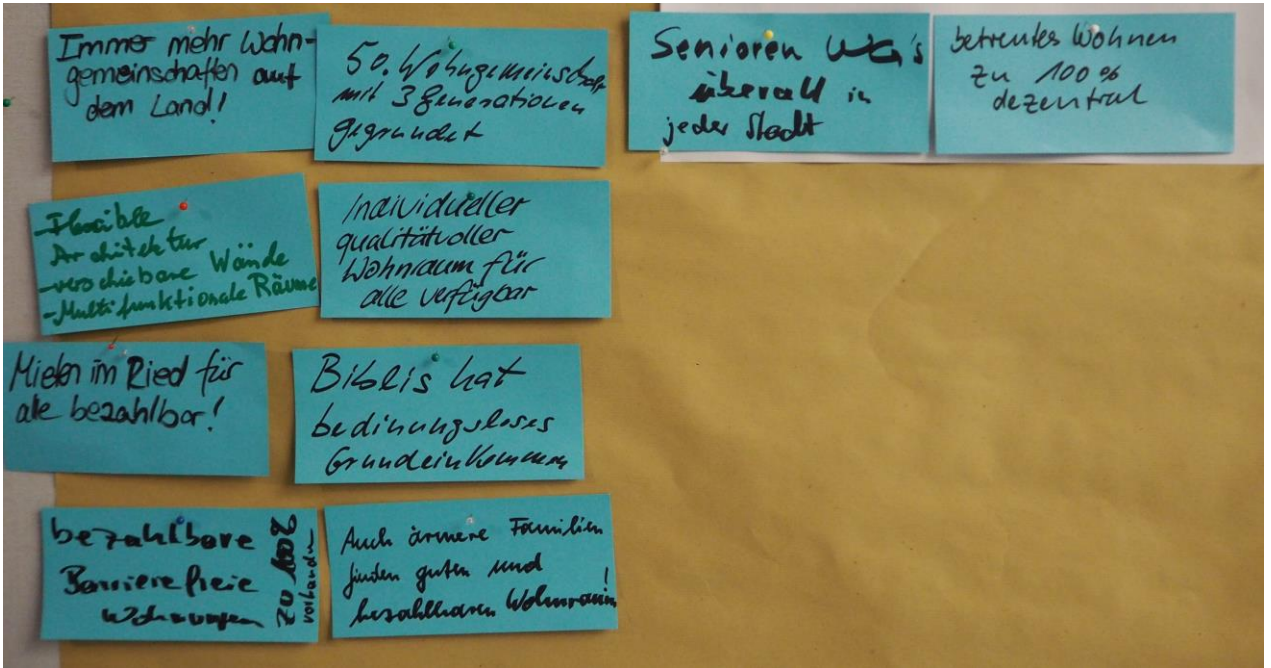 Immer mehr Wohn-
gemeinschaften auf
dem Land!
50. Wohngemeinschaft
mit 3 Generationen
gegründet
Senioren WG's
überall in
jeder Stadt
betreutes Wohnen
zu 100%
dezentral
-Flexible
Architektur
-verschiebbare Wände
-Multifunktionale Räume
Individueller
qualitätvoller
Wohnraum für
alle verfügbar
Mieten im Ried für
alle bezahlbar!
Biblis hat
bedinungsloses
Grundeinkommen
bezahlbare
Barriere freie
Wohnungen
zu 100%
vorhanden
Auch ärmere Familien
finden guten und
bezahlbaren Wohnraum!